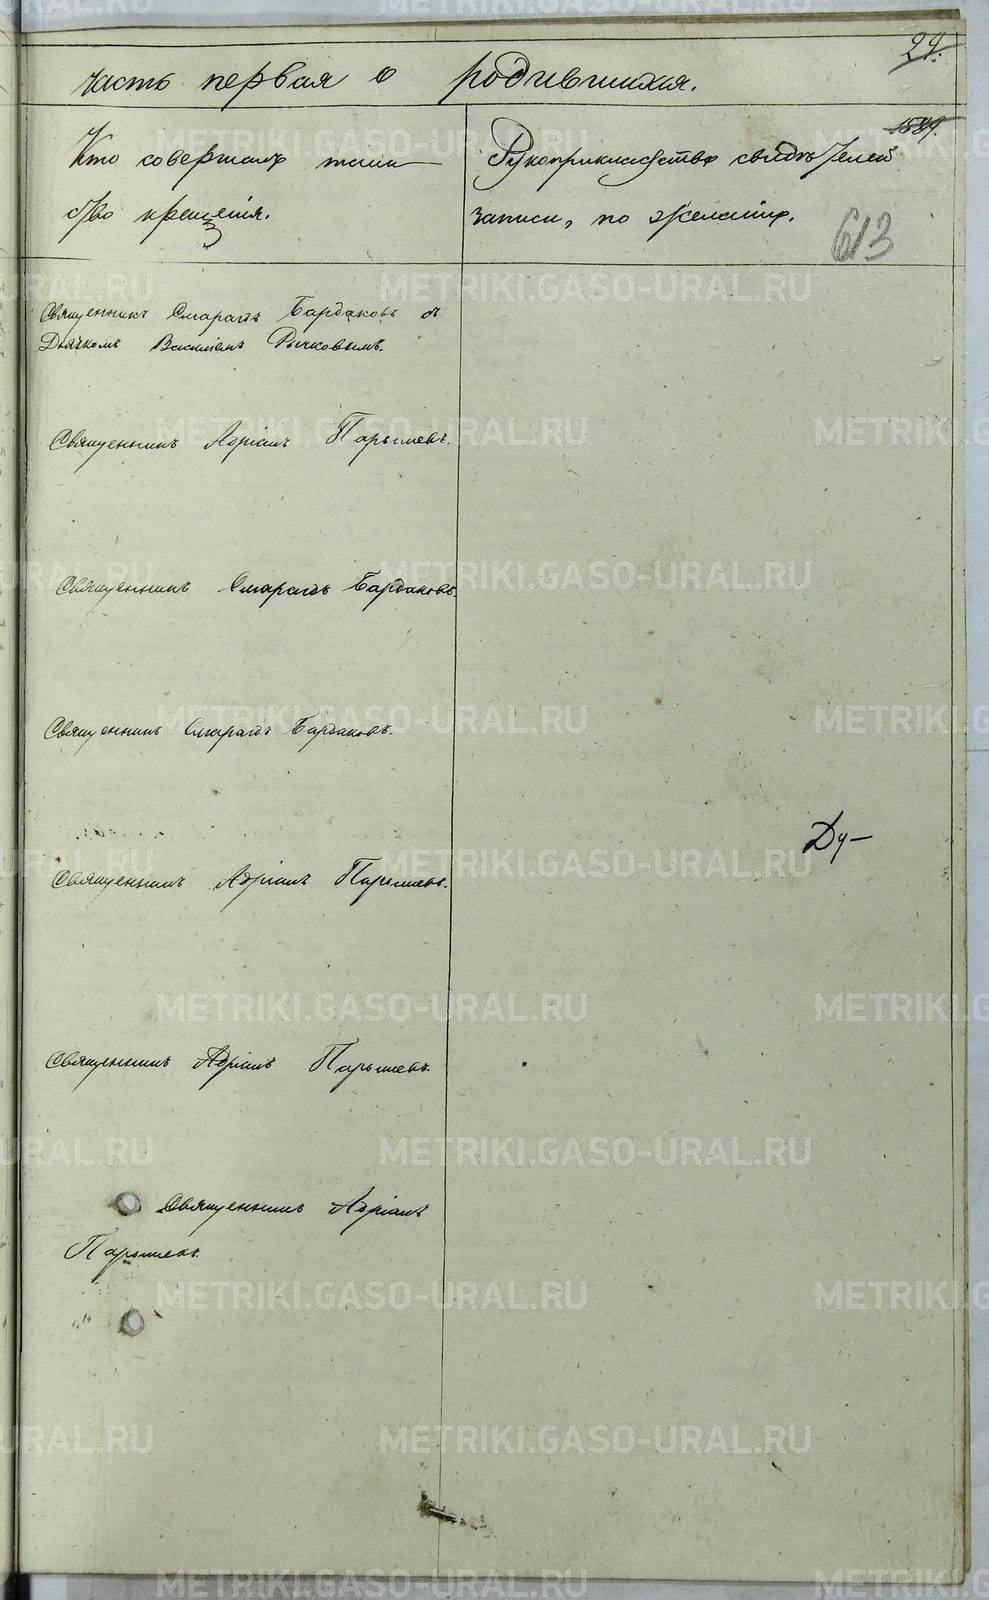 29.
часть первая о родившихся.
1889.
Кто совершалъ таин-
ство крещенія.
Рукоприкладство свидѣтелей
записи, по желанію.
613
Священникъ Смарагдъ Бардаковъ съ
Дьячкомъ Василіемъ Рычковымъ.
Священникъ Адріанъ Парышевъ.
Священникъ Смарагдъ Бардаковъ.
Священникъ Смарагдъ Бардаковъ.
Священникъ Адріанъ Парышевъ.
Священникъ Адріанъ Парышевъ.
Священникъ Адріанъ
Парышевъ.
METRIKI.GASO-URAL.RU